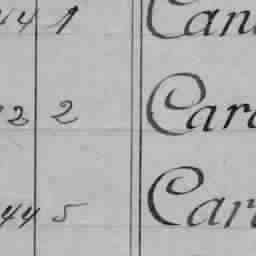 44 1 Can
2 2 Car
44 5 Car